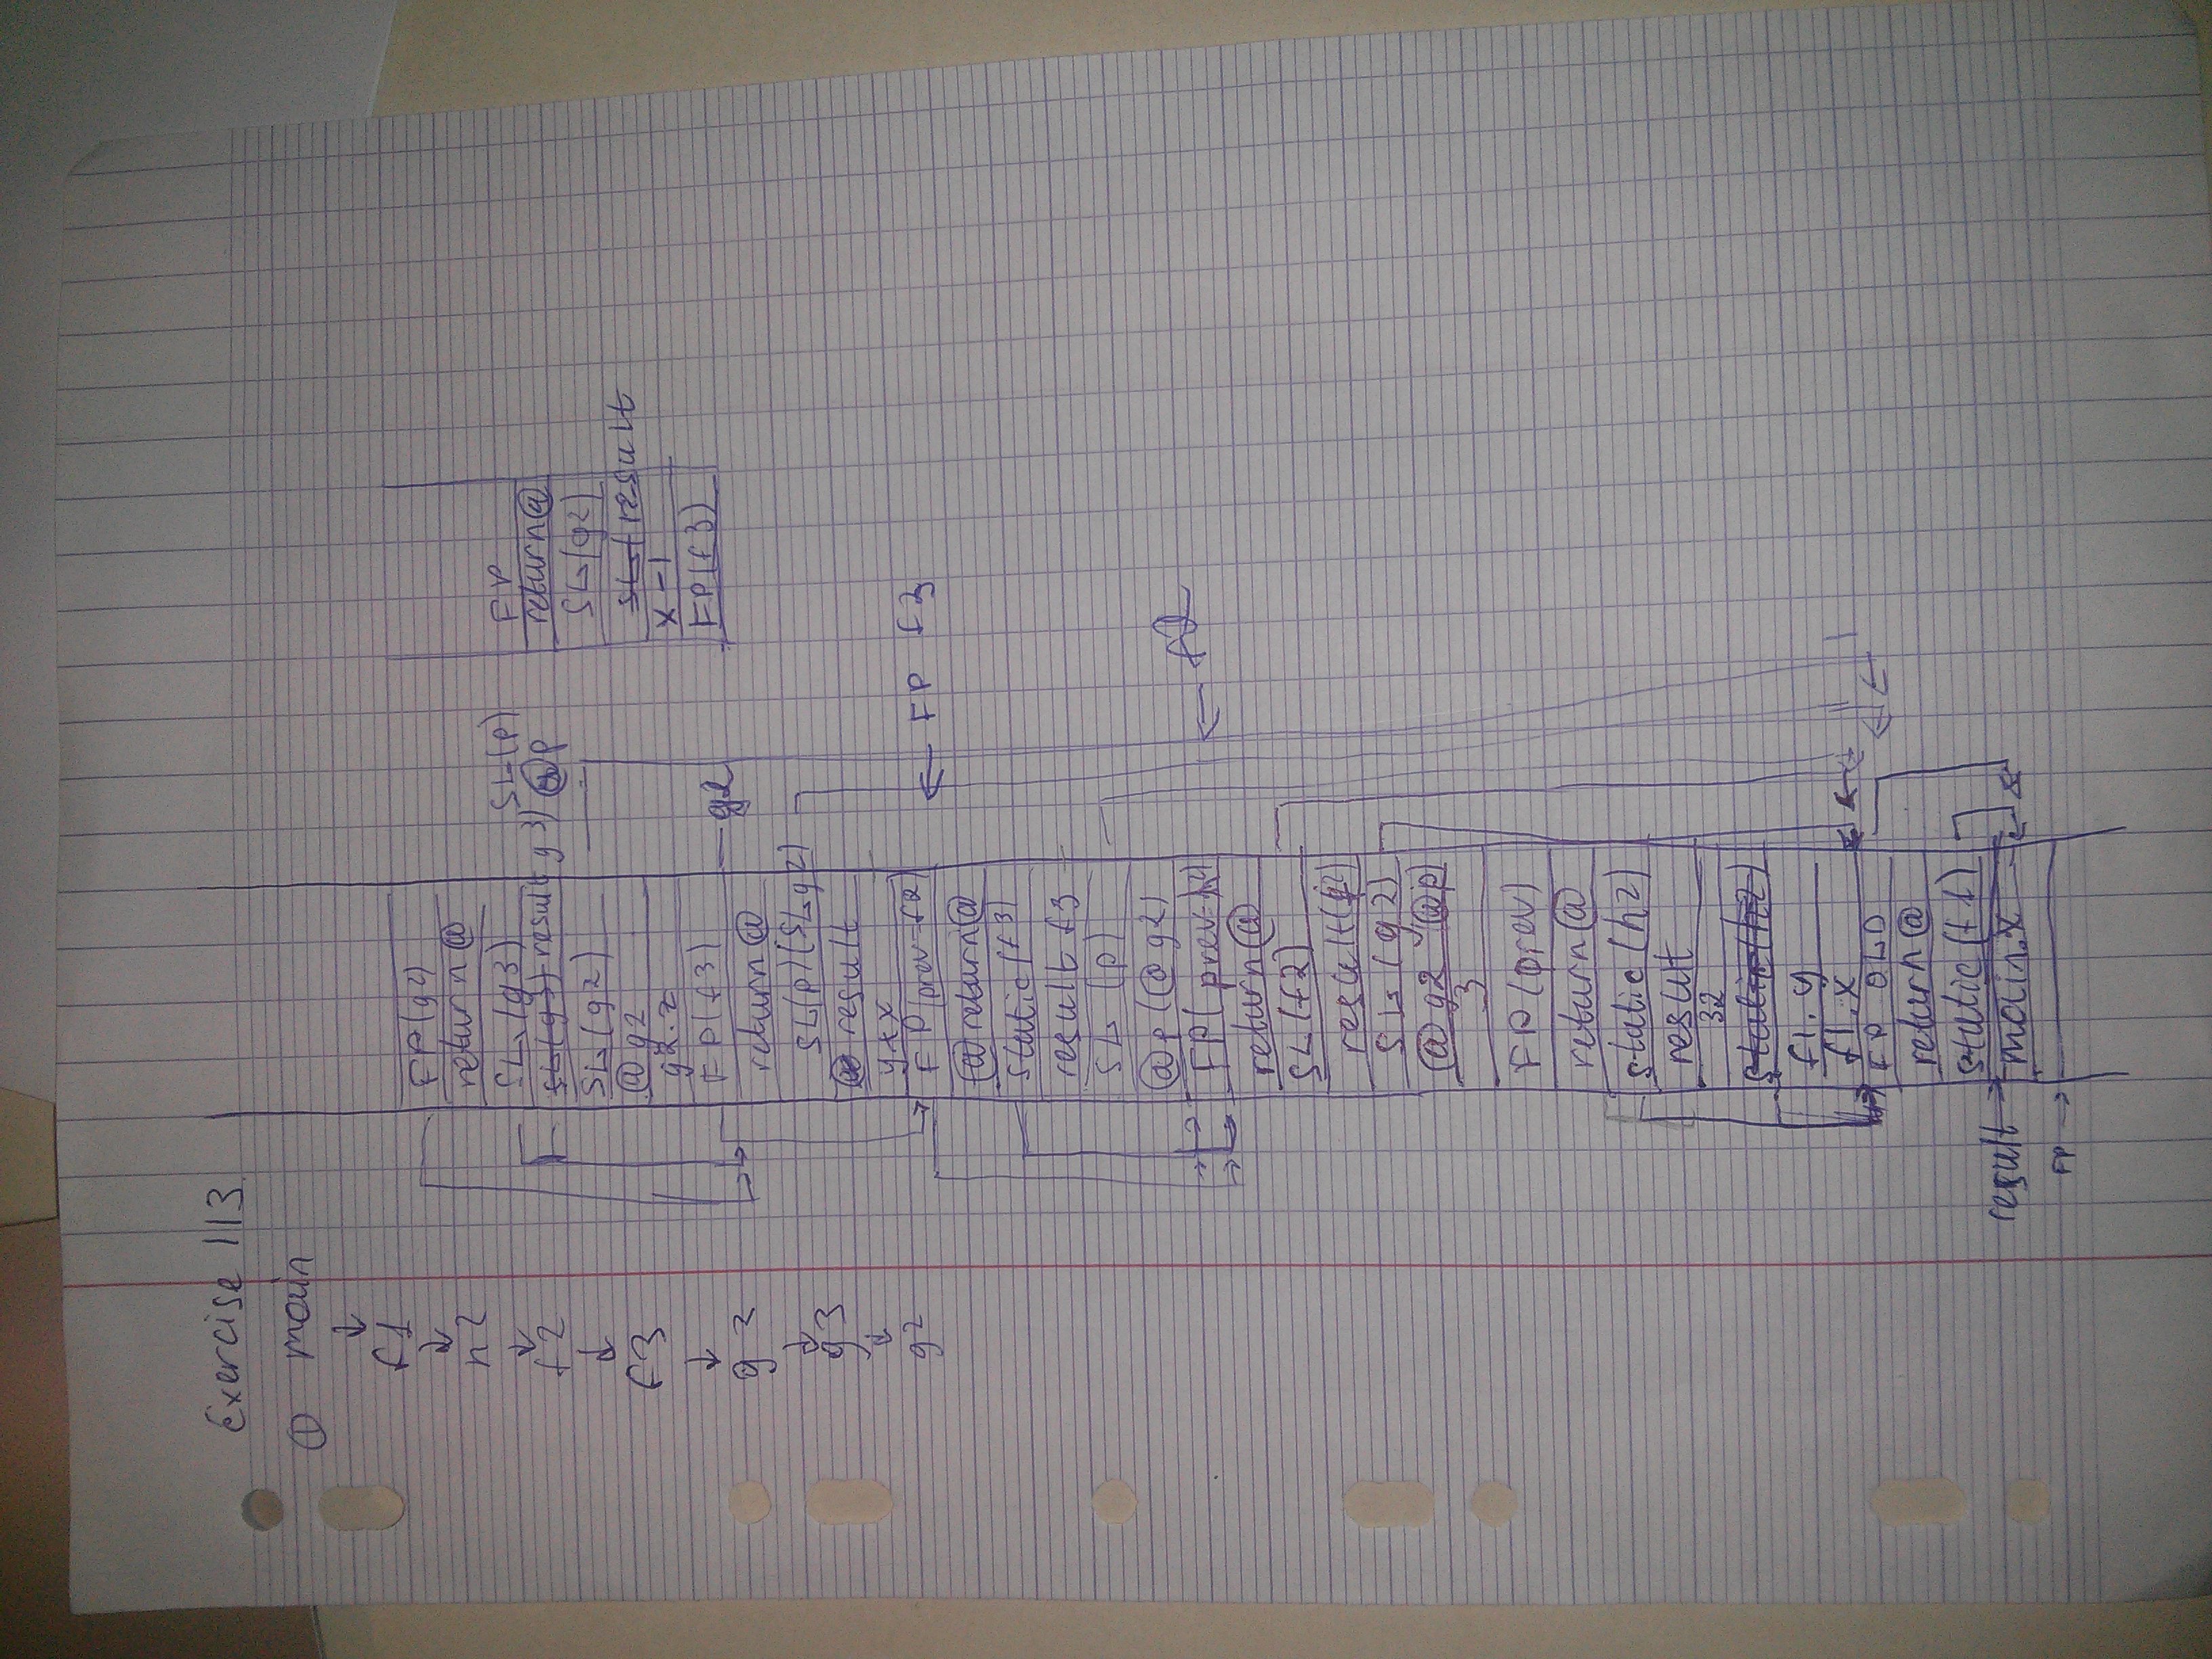 Exercise 113
① main
↓
f1
↓
h2
↓
f2
↓
f3
↓
g2
↓
g3
↓
g2
FP(g2)
return@
SL(g3)
SL(g3) result g3) @p
SL(p)
SL(g2)
@g2
g2.x
FP(f3)
g2
return@
SL(p)(SLg2)
@ result
y*x
FP(prev=f2)
← FP f3
@return@
static(f3)
result f3
SL (p)
@p(@g2)
← f2
return@
SL(f2)
SL(g2)
@g2 @p
3
FP(prev)
return@
static(h2)
result
32
static(h2)
f1.y
f1.x
FP OLD
return@
static(f1)
result → main.x
FP →
FP
return@
SL(g2)
SL result
x-1
FP(f3)